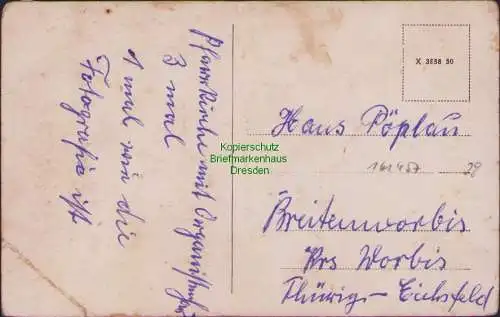 Pfarrkirche mit Organistenhs
3 mal
1 mal wie die
Fotografie ist
X 3858 50
Hans Pöplau
161457
39
Breitenworbis
Krs Worbis
Thürig-Eichsfeld
Kopierschutz
Briefmarkenhaus
Dresden